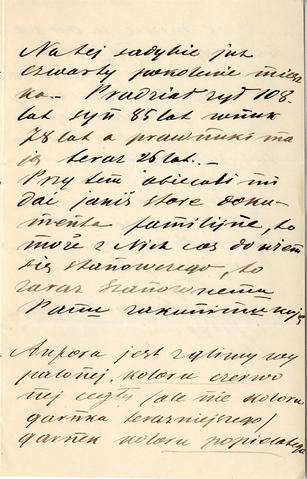 Na tej sadybie już
czwarty pokolenie miesz
ka. – Pradziad żył 108
lat syn 85 lat wnuk
78 lat a prawnuki ma
ją teraz 26 lat. –
Przy tem obiecali mi
dać jakiś stare doku-
menta familijne, to
może z Nich coś dowiem
się stanowczego, to
zaraz Szanownemu
Panu zakomunikuję
Ankora jest z gliny wy
palonej, koloru czerwo
nej cegły /ale nie koloru
garnka terazniejszego/
garnek koloru popielatego